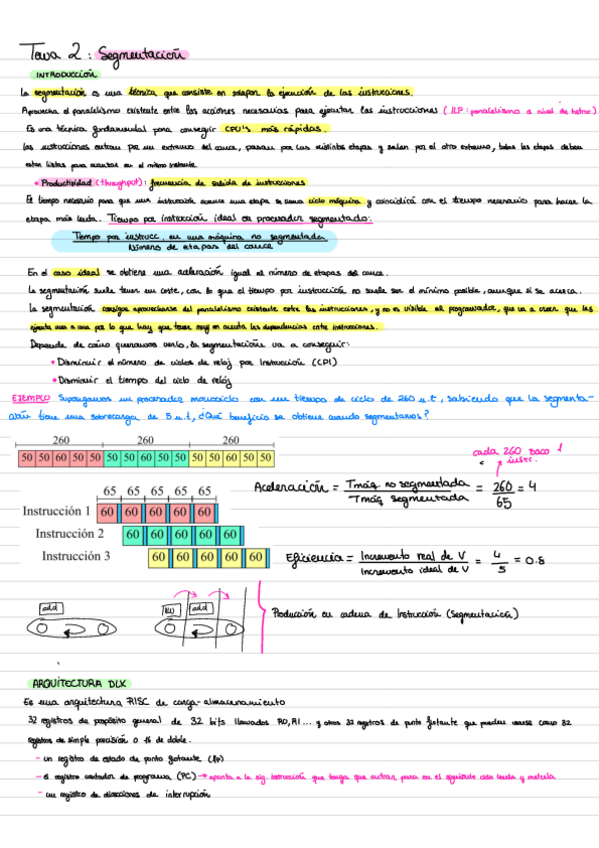 Tema 2: Segmentación
INTRODUCCIÓN
La segmentación es una técnica que consiste en solapar la ejecución de las instrucciones.
Aprovecha el paralelismo existente entre las acciones necesarias para ejecutar las instrucciones (ILP: paralelismo a nivel de instrucc)
Es una técnica fundamental para conseguir CPU's más rápidas.
Las instrucciones entran por un extremo del cauce, pasan por las distintas etapas y salen por el otro extremo, todas las etapas deben
estar listas para avanzar en el mismo instante.
• Productividad (throughput): frecuencia de salida de instrucciones
El tiempo necesario para que una instrucción avance una etapa se llama ciclo máquina y coincidirá con el tiempo necesario para hacer la
etapa más lenta. Tiempo por instrucción ideal en procesador segmentado:
Tiempo por instrucc. en una máquina no segmentada
Número de etapas del cauce
En el caso ideal se obtiene una aceleración igual al número de etapas del cauce.
La segmentación suele tener un coste, con lo que el tiempo por instrucción no suele ser el mínimo posible, aunque si se acerca.
La segmentación consigue aprovecharse del paralelismo existente entre las instrucciones, y no es visible al programador, que va a creer que las
ejecuta una a una por lo que hay que tener muy en cuenta las dependencias entre instrucciones.
Depende de cómo queramos verlo, la segmentación va a conseguir:
• Disminuir el número de ciclos de reloj por Instrucción (CPI)
• Disminuir el tiempo del ciclo de reloj
EJEMPLO Supongamos un procesador monociclo con un tiempo de ciclo de 260 u.t, sabiendo que la segmenta-
ción tiene una sobrecarga de 5 u.t, ¿Qué beneficio se obtiene cuando segmentamos?
260 260 260
50 50 60 50 50 50 50 60 50 50 50 50 60 50 50
cada 260 saco 1
instr.
65 65 65 65 65
Aceleración = Tmáq no segmentada / Tmáq segmentada = 260 / 65 = 4
Instrucción 1 60 60 60 60 60
Instrucción 2 60 60 60 60 60
Instrucción 3 60 60 60 60 60
Eficiencia = Incremento real de V / Incremento ideal de V = 4 / 5 = 0.8
add lw add
Producción en cadena de Instrucción (Segmentación)
ARQUITECTURA DLX
Es una arquitectura RISC de carga-almacenamiento
32 registros de propósito general de 32 bits llamados R0, R1... y otros 32 registros de punto flotante que pueden usarse como 32
registros de simple precisión o 16 de doble.
- un registro de estado de punto flotante (fp)
- el registro contador de programa (PC) → apunta a la sig. instrucción que tenga que entrar para en el siguiente ciclo leerla y meterla
- un registro de direcciones de interrupción